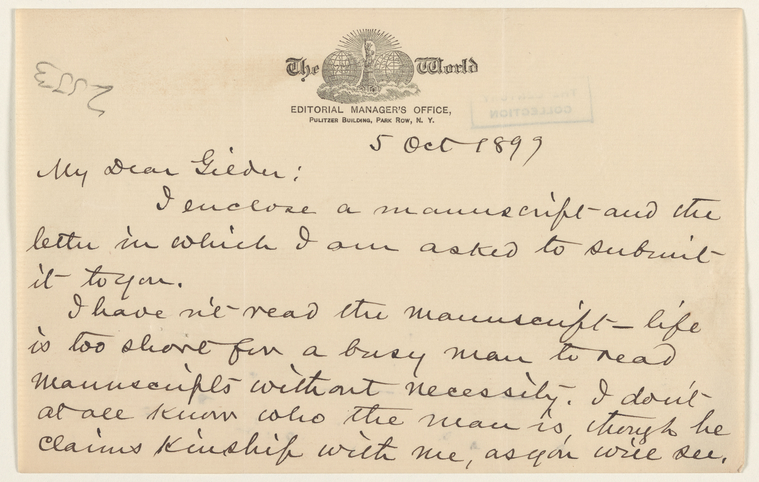 The World
EDITORIAL MANAGER'S OFFICE,
PULITZER BUILDING, PARK ROW, N. Y.
COLLECTION
5 Oct 1899
My Dear Gilder:
I enclose a manuscript and the
letter in which I am asked to submit
it to you.
I have n't read the manuscript – life
is too short for a busy man to read
manuscripts without necessity. I don't
at all know who the man is, though he
claims kinship with me, as you will see.